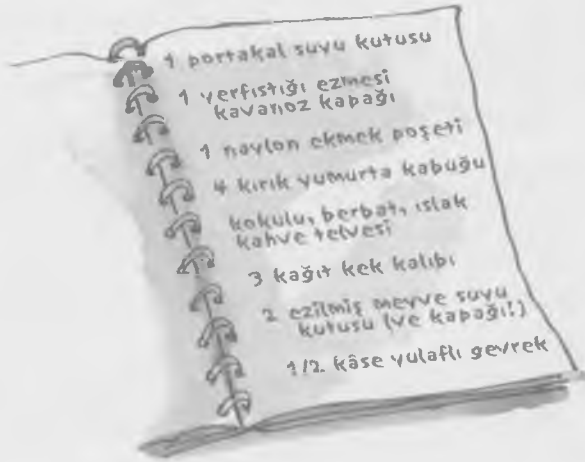 1 portakal suyu kutusu
1 yerfıstığı ezmesi
kavanoz kapağı
1 naylon ekmek poşeti
4 kırık yumurta kabuğu
kokulu, berbat, ıslak
kahve telvesi
3 kağıt kek kalıbı
2 ezilmiş meyve suyu
kutusu (ve kapağı!)
1/2 kâse yulaflı gevrek